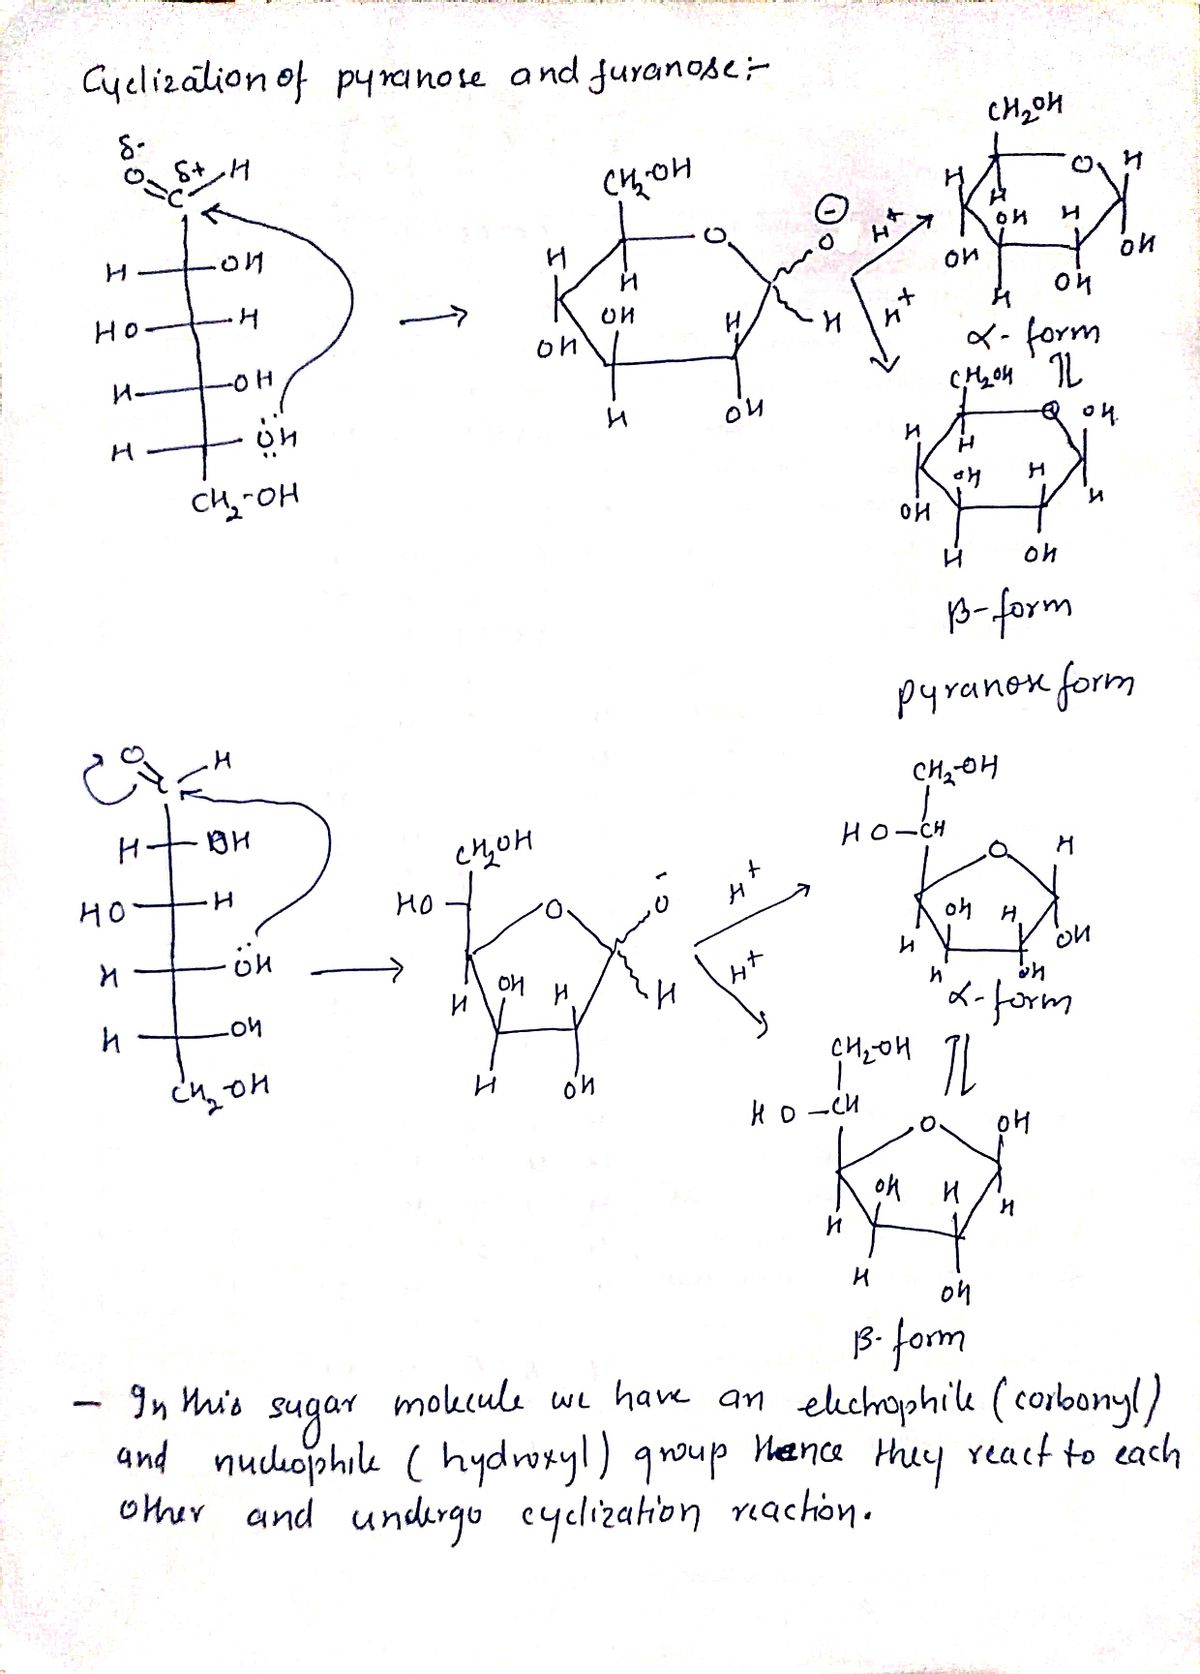 Cyclization of pyranose and furanose:-
δ-
O δ+ H
C
H OH
HO H
H OH
H ÖH
CH2-OH
CH2-OH
O
H
H
OH
OH
H
H
OH
⊖
O
H
H+
H+
CH2OH
O H
H
H
OH H
OH
OH
H
OH
α-form
CH2OH
O OH
H
H
OH H
OH
H
H
OH
β-form
pyranose form
O H
C
H OH
HO H
H ÖH
H OH
CH2-OH
CH2OH
HO
O
O-
OH H
H
H
H
OH
H+
H+
CH2-OH
HO-CH
O H
OH H
H
OH
H
OH
α-form
CH2-OH
HO-CH
O OH
OH H
H
H
H
OH
β-form
- In this sugar molecule we have an electrophile (carbonyl)
and nucleophile (hydroxyl) group Hence they react to each
other and undergo cyclization reaction.